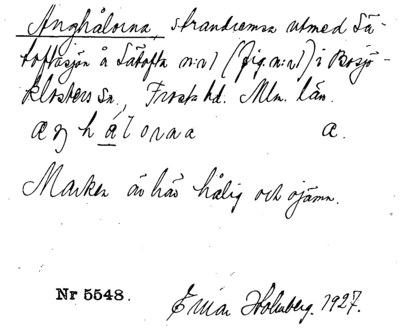 Änghålorna, strandremsa utmed Sä-
toftasjön å Sätofta n:r 1 (fig. n:r 1) i Bosjö-
klosters sn., Frosta hd. Mlm. län.
æŋhålorna a.
Marken är här hålig och ojämn.
Nr 5548. Einar Holmberg. 1927.